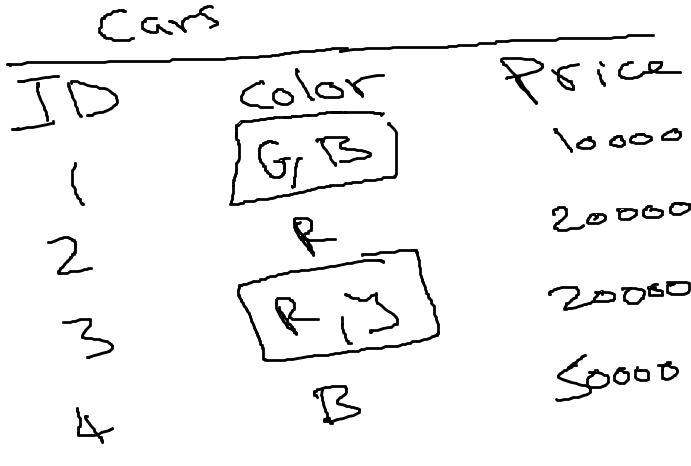 Cars
ID Color Price
1 G, B 10000
2 R 20000
3 R, Y 20000
4 B 50000